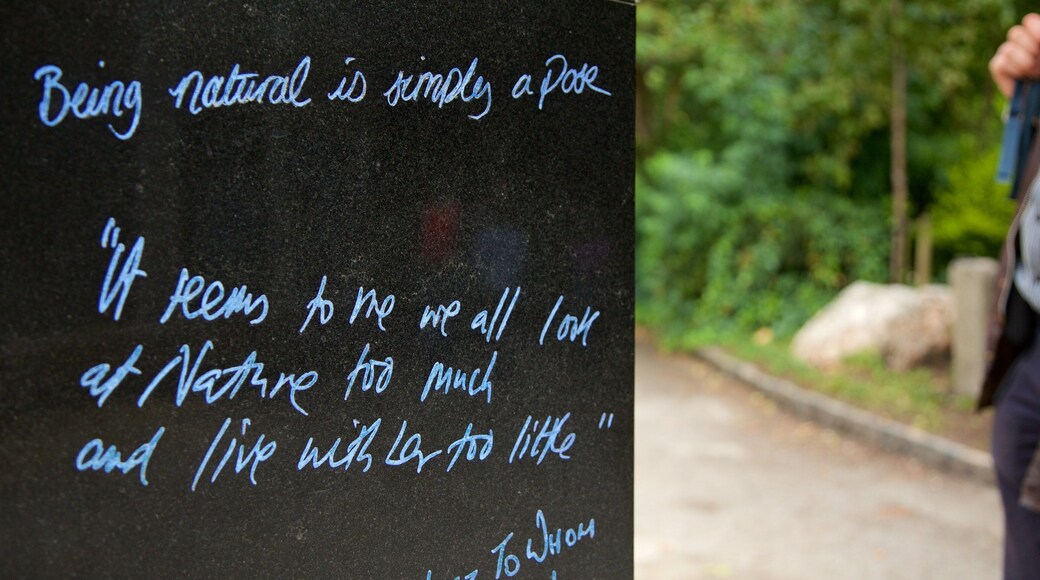 Being natural is simply a pose
"It seems to me we all look
at Nature too much
and live with her too little"
TO WHOM